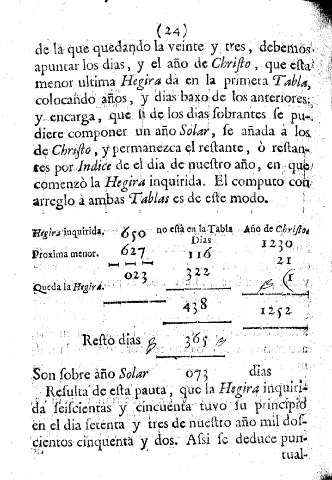 (24)
de la que quedando la veinte y tres, debemos
apuntar los dias, y el año de Christo, que esta
menor ultima Hegira dà en la primera Tabla,
colocando años, y dias baxo de los anteriores:
y encarga, que si de los dias sobrantes se pu-
diere componer un año Solar, se añada à los
de Christo, y permanezca el restante, ò restan-
tes por Indice de el dia de nuestro año, en que
comenzò la Hegira inquirida. El computo con
arreglo à ambas Tablas es de este modo.
Hegira inquirida. 650 no està en la Tabla Año de Christo.
Dias 1230
Proxima menor. 627 116 21
023 322 (1
Queda la Hegira.
438 1252
Resto dias 365
Son sobre año Solar 073 dias
Resulta de esta pauta, que la Hegira inquiri-
da seiscientas y cincuenta tuvo su principio
en el dia setenta y tres de nuestro año mil dos-
cientos cinquenta y dos. Assi se deduce pun-
tual-